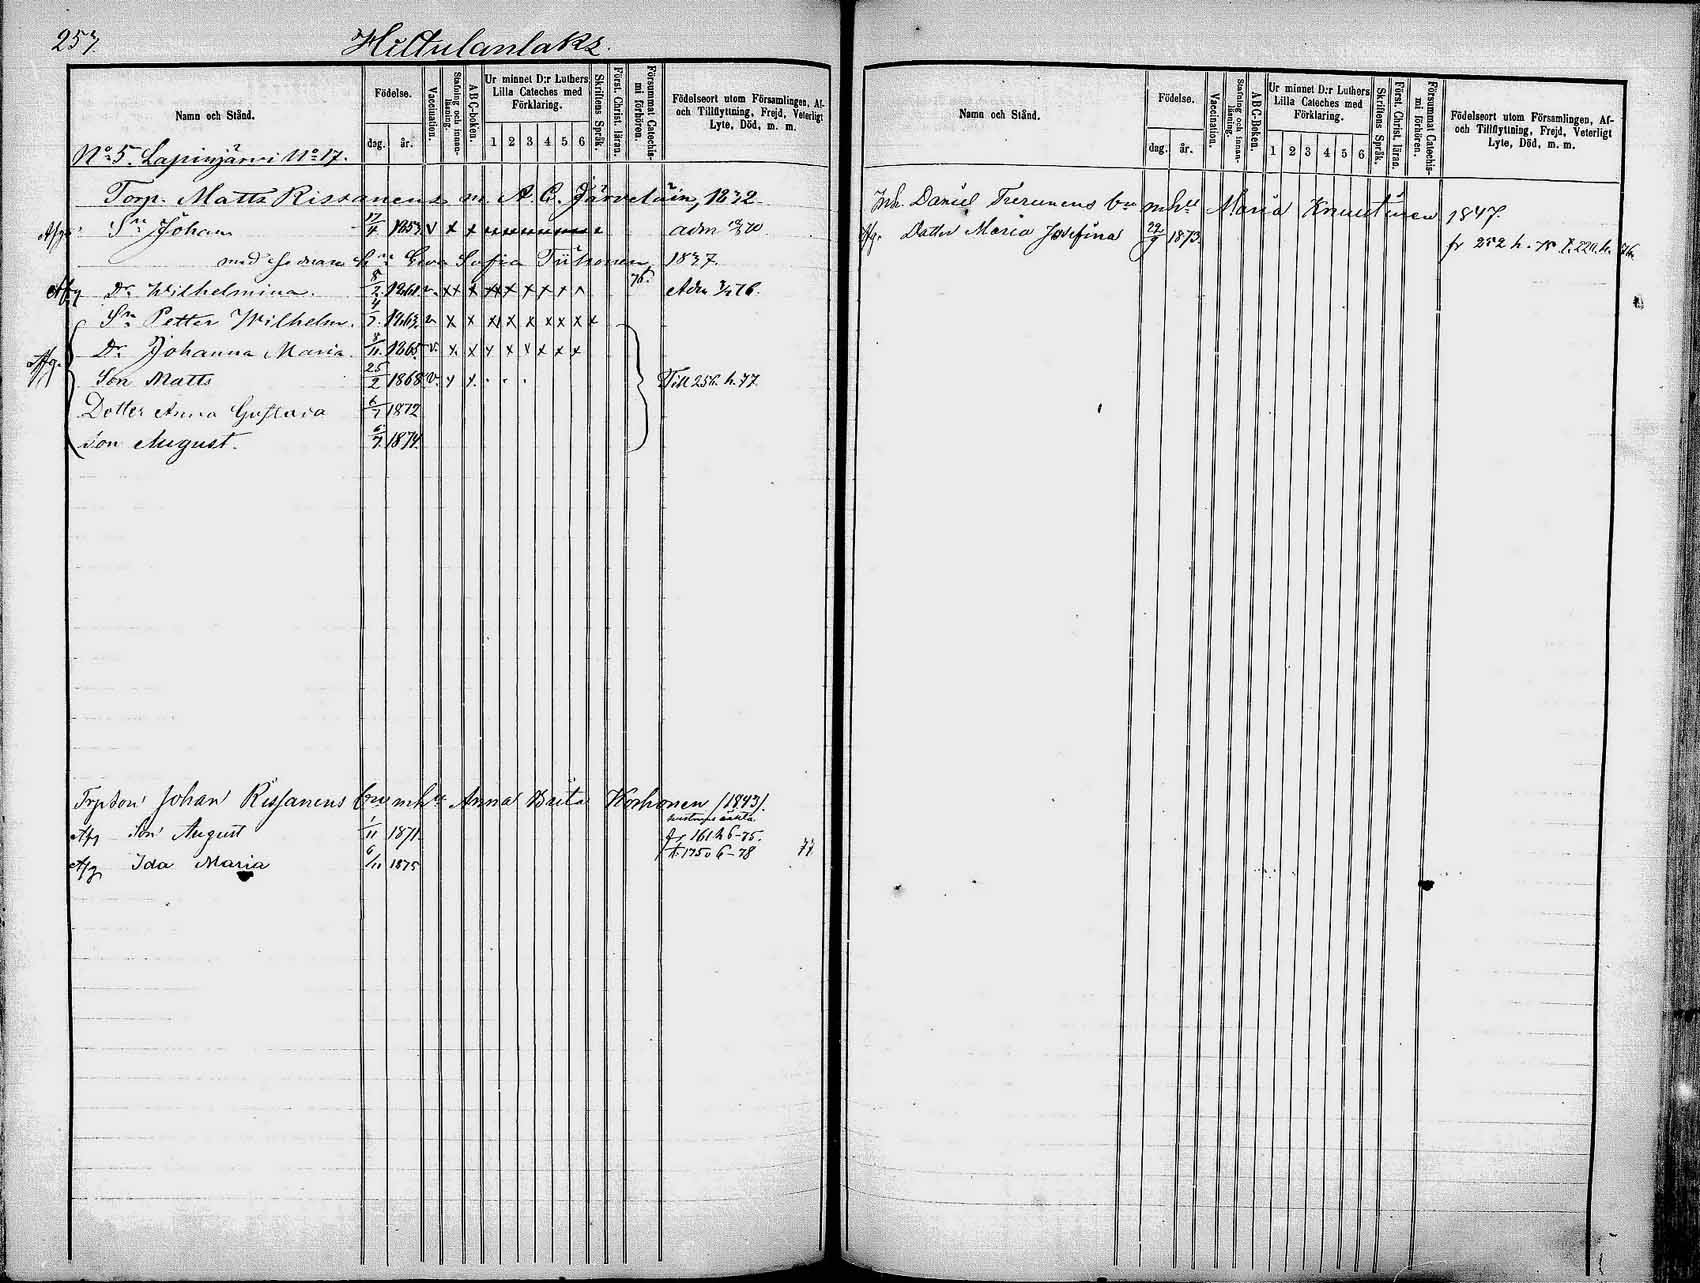 257 Hiltulanlaks.
Namn och Stånd.
Födelse.
dag. år.
Vaccination.
Stafning och innan-läsning.
A B C-boken.
Ur minnet D:r Luthers Lilla Cateches med Förklaring.
1 2 3 4 5 6
Skriftens Språk.
Först. Christ. läran.
Försummat Catechis-mi förhören.
Födelseort utom Församlingen, Af- och Tillflyttning, Frejd, Veterligt Lyte, Död, m. m.
No 5. Lapinjärvi No 17.
Torp. Matts Rissanens m A. C. Järveläin, 1832
Sn Johan 17/4 1853 v x x adm
med sednare Eva Sofia Tiihonen, 1837.
Afg Dr Wilhelmina. 5/2 1861 v. x x x x x x x 76. Adm 76.
Sn Petter Wilhelm. 4/7 1863 v x x x x x x x x x
Afg. Dr Johanna Maria. 8/11 1865 v. x x x x x x x x
Son Matts 25/2 1868 v. x x . . . Till 256. h. 77
Dotter Anna Gustava 6/7 1872
Son August. 5/7 1874.
Trpson Johan Rissanens mh Anna Brita Korhonen (1843).
Afg Son August 1/11 1871 fr 161 h 6-75.
Afg Ida Maria 6/11 1875 t. 175 v 6-78 77
Namn och Stånd.
Födelse.
dag. år.
Vaccination.
Stafning och innan-läsning.
A B C-Boken.
Ur minnet D:r Luthers Lilla Cateches med Förklaring.
1 2 3 4 5 6
Skriftens Språk.
Först. Christ. läran.
Försummat Catechis-mi förhören.
Födelseort utom Församlingen, Af- och Tillflyttning, Frejd, Veterligt Lyte, Död, m. m.
Inh. Daniel mh Maria Knuutinen 1847.
Afg. Dotter Maria Josefina 22/9 1873. fr 252 h. 75 t. 220. h.